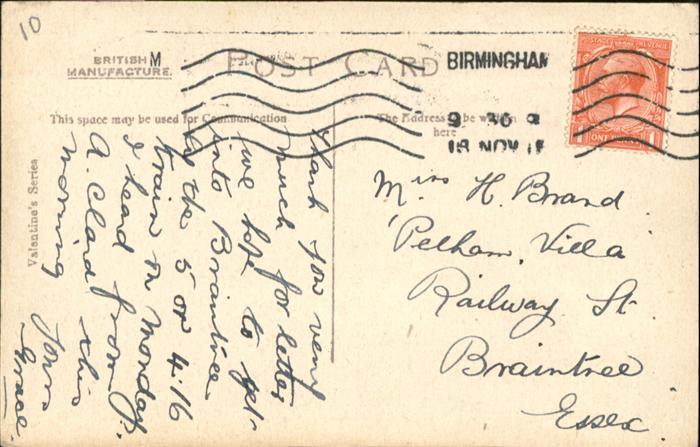 10
BRITISH M
MANUFACTURE.
POST CARD
BIRMINGHAM
9 30
18 NOV
This space may be used for Communication
The Address to be written
here
Valentine's Series
ONE PENNY
Thank you very
much for letter
we hope to get
into Braintree
by the 5 or 4.16
train on Monday.
I head from
A. Clard this
morning
Yours
Grace.
Miss H. Brand
'Pelham Villa'
Railway St
Braintree
Essex